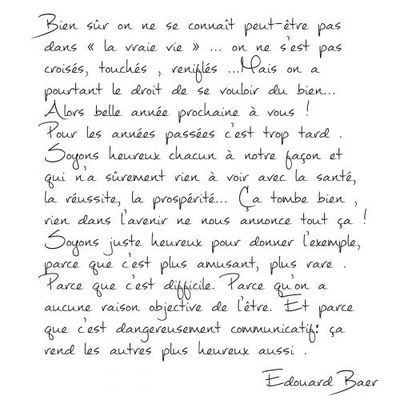 Bien sûr on ne se connaît peut-être pas
dans « la vraie vie » ... on ne s'est pas
croisés, touchés , reniflés ...Mais on a
pourtant le droit de se vouloir du bien...
Alors belle année prochaine à vous !
Pour les années passées c'est trop tard .
Soyons heureux chacun à notre façon et
qui n'a sûrement rien à voir avec la santé,
la réussite, la prospérité... Ça tombe bien ,
rien dans l'avenir ne nous annonce tout ça !
Soyons juste heureux pour donner l'exemple,
parce que c'est plus amusant, plus rare .
Parce que c'est difficile. Parce qu'on a
aucune raison objective de l'être. Et parce
que c'est dangereusement communicatif: ça
rend les autres plus heureux aussi .
Edouard Baer